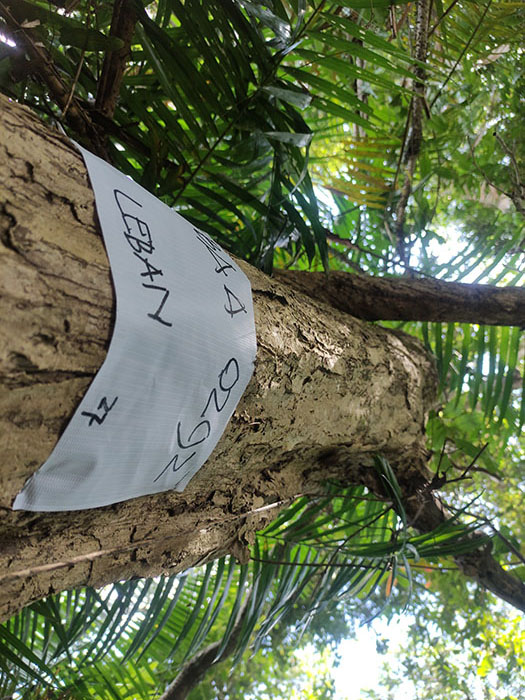 BAA 0292
LEBAN
27